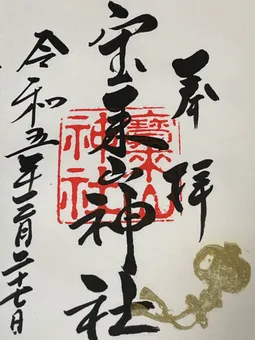 奉拝
宝来山神社
寶來山
神社
令和五年三月二十七日